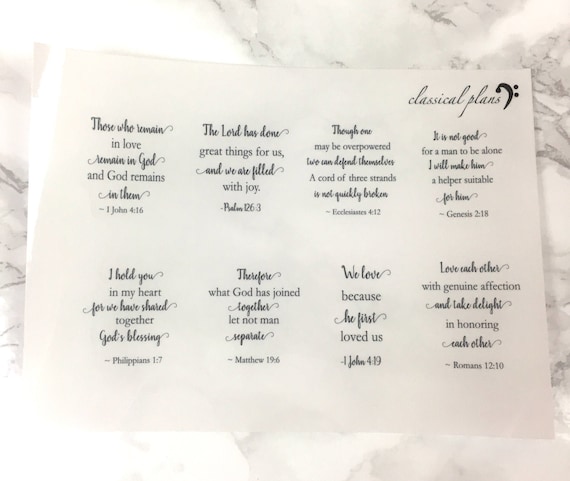 classical plans
Those who remain
in love
remain in God
and God remains
in them
~ I John 4:16
The Lord has done
great things for us,
and we are filled
with joy.
-Psalm 126:3
Though one
may be overpowered
two can defend themselves
A cord of three strands
is not quickly broken
~ Ecclesiastes 4:12
It is not good
for a man to be alone
I will make him
a helper suitable
for him
~ Genesis 2:18
I hold you
in my heart
for we have shared
together
God's blessing
~ Philippians 1:7
Therefore
what God has joined
together
let not man
separate
~ Matthew 19:6
We love
because
he first
loved us
-1 John 4:19
Love each other
with genuine affection
and take delight
in honoring
each other
~ Romans 12:10